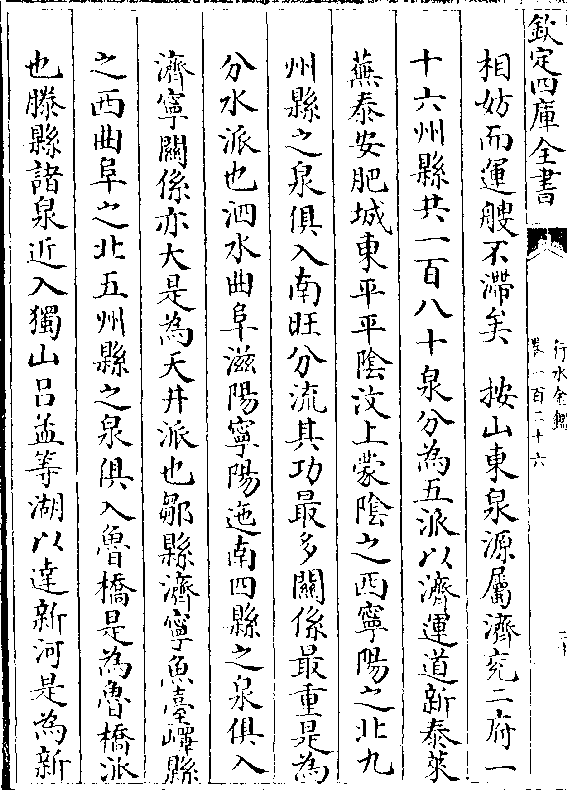 欽定四庫全書
行水金鑑
卷一百二十六
相妨而運艘不滯矣　按山東泉源屬濟兖二府一
十六州縣共一百八十泉分為五派以濟運道新泰萊
蕪泰安肥城東平平陰汶上蒙陰之西寧陽之北九
州縣之泉俱入南旺分流其功最多關係最重是為
分水派也泗水曲阜滋陽寧陽迤南四縣之泉俱入
濟寧關係亦大是為天井派也鄒縣濟寧魚臺嶧縣
之西曲阜之北五州縣之泉俱入魯橋是為魯橋派
也滕縣諸泉近入獨山吕孟等湖以達新河是為新